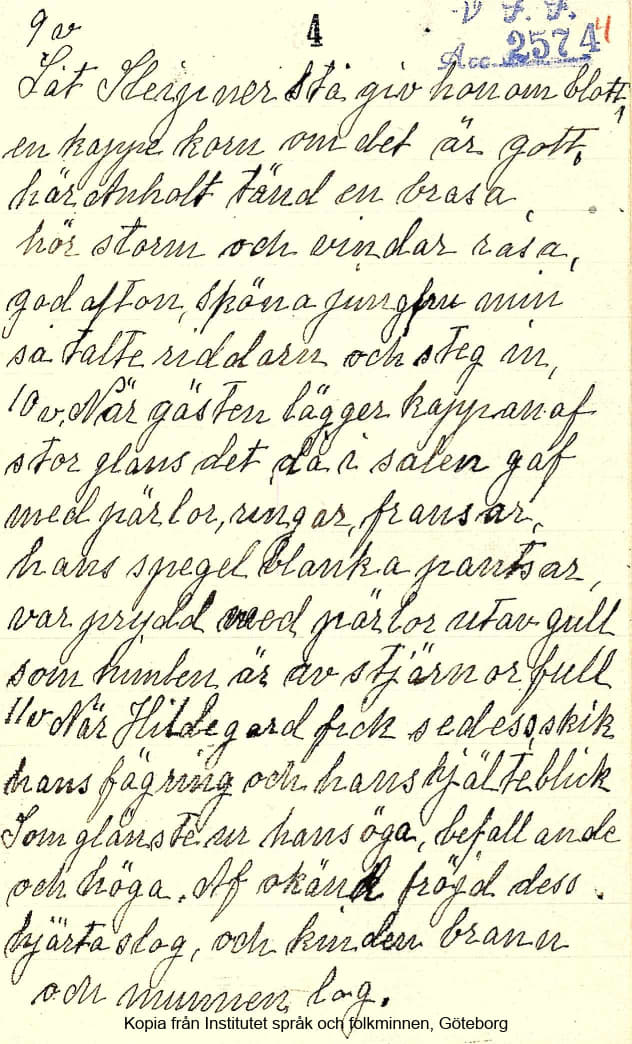 9 v
4
V. F. F.
Acc. 2574
4
Låt Sleipner stå giv honom blott,
en kappe korn om det är gott,
här Anholt tänd en brasa,
hör storm och vindar rasa,
god afton, sköna jungfru min
så talte riddarn och steg in,
10 v, När gästen lägger kappan af
stor glans det då i salen gaf
med pärlor, ringar, fransar,
hans spegel blanka pantsar,
var prydd med pärlor utav gull
som himlen är av stjärnor full
11 v När Hildegard fick se dess skik
hans fägring och hans hjälteblick
Som glänste ur hans öga, befallande
och höga. Af okänd fröjd dess
hjärta slog, och kinden brann
och munnen log.
Kopia från Institutet språk och folkminnen, Göteborg